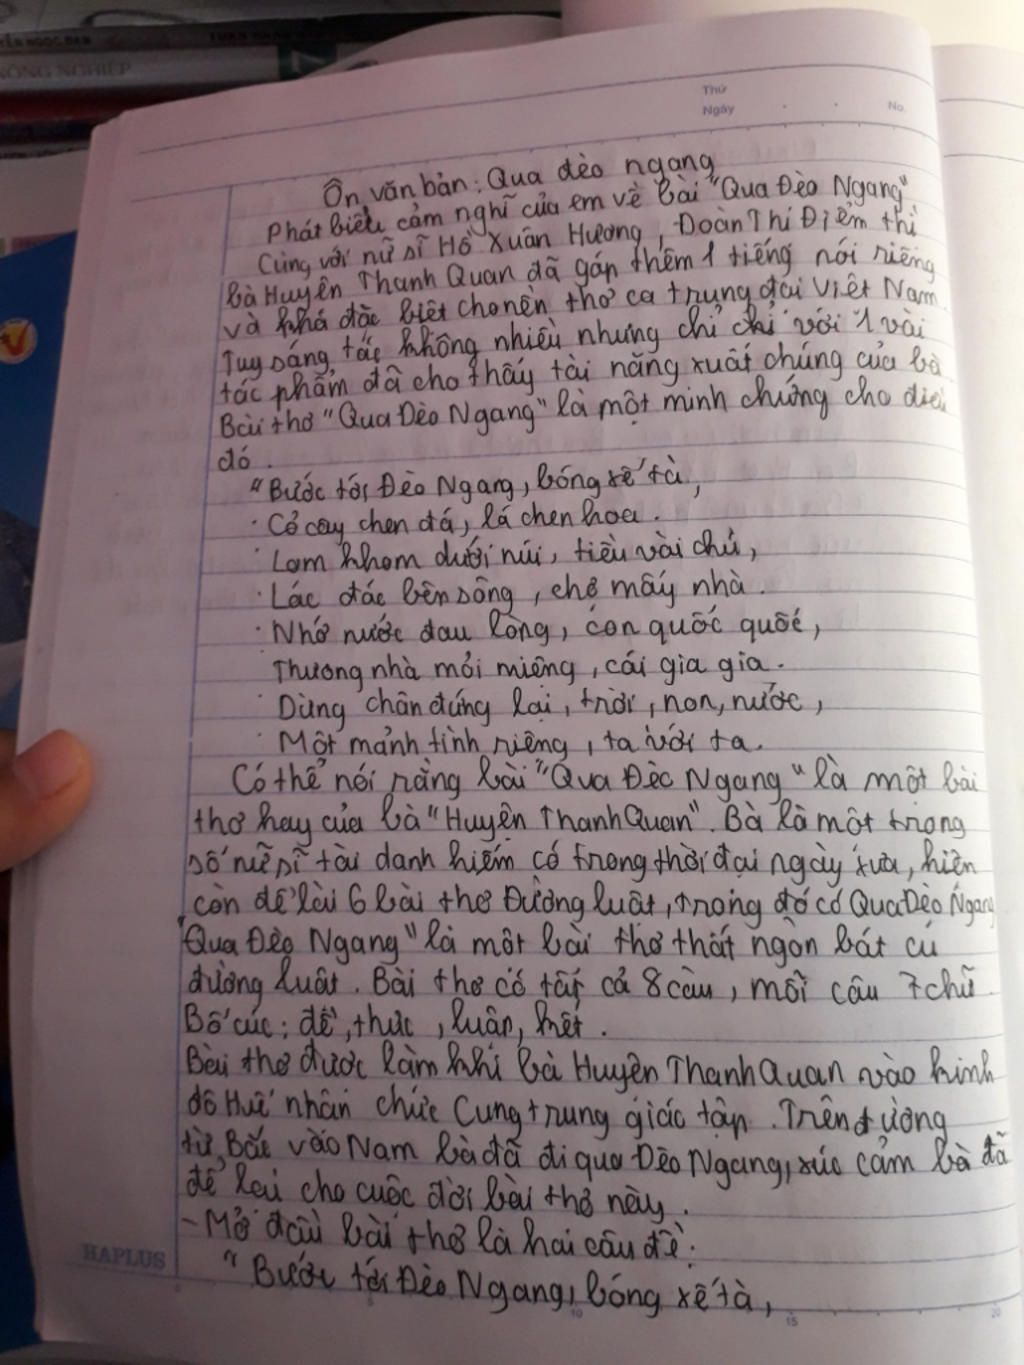 ỄN NGỌC DAN
NÔNG NGHIỆP
Thứ
Ngày
No.
Ôn văn bản: Qua đèo ngang
Phát biểu cảm nghĩ của em về bài "Qua Đèo Ngang"
Cùng với nữ sĩ Hồ Xuân Hương, Đoàn Thị Điểm thì
bà Huyện Thanh Quan đã góp thêm 1 tiếng nói riêng
và khá đặc biệt cho nền thơ ca trung đại Việt Nam
Tuy sáng tác không nhiều nhưng chỉ chỉ với 1 vài
tác phẩm đã cho thấy tài năng xuất chúng của bà
Bài thơ "Qua Đèo Ngang" là một minh chứng cho điều
đó.
"Bước tới Đèo Ngang, bóng xế tà,
Cỏ cây chen đá, lá chen hoa.
Lom khom dưới núi, tiều vài chú,
Lác đác bên sông, chợ mấy nhà.
Nhớ nước đau lòng, con quốc quốc,
Thương nhà mỏi miệng, cái gia gia.
Dừng chân đứng lại, trời, non, nước,
Một mảnh tình riêng, ta với ta.
Có thể nói rằng bài "Qua Đèo Ngang" là một bài
thơ hay của bà "Huyện Thanh Quan". Bà là một trong
số nữ sĩ tài danh hiếm có trong thời đại ngày xưa, hiện
còn để lại 6 bài thơ Đường luật, trong đó có Qua Đèo Ngang
"Qua Đèo Ngang" là một bài thơ thất ngôn bát cú
đường luật. Bài thơ có tất cả 8 câu, mỗi câu 7 chữ
Bố cục: đề, thực, luận, kết.
Bài thơ được làm khi bà Huyện Thanh Quan vào kinh
đô Huế nhận chức Cung trung giáo tập. Trên đường
từ Bắc vào Nam bà đã đi qua Đèo Ngang, xúc cảm bà đã
để lại cho cuộc đời bài thơ này.
- Mở đầu bài thơ là hai câu đề:
"Bước tới Đèo Ngang, bóng xế tà,
HAPLUS
5
10
15
20